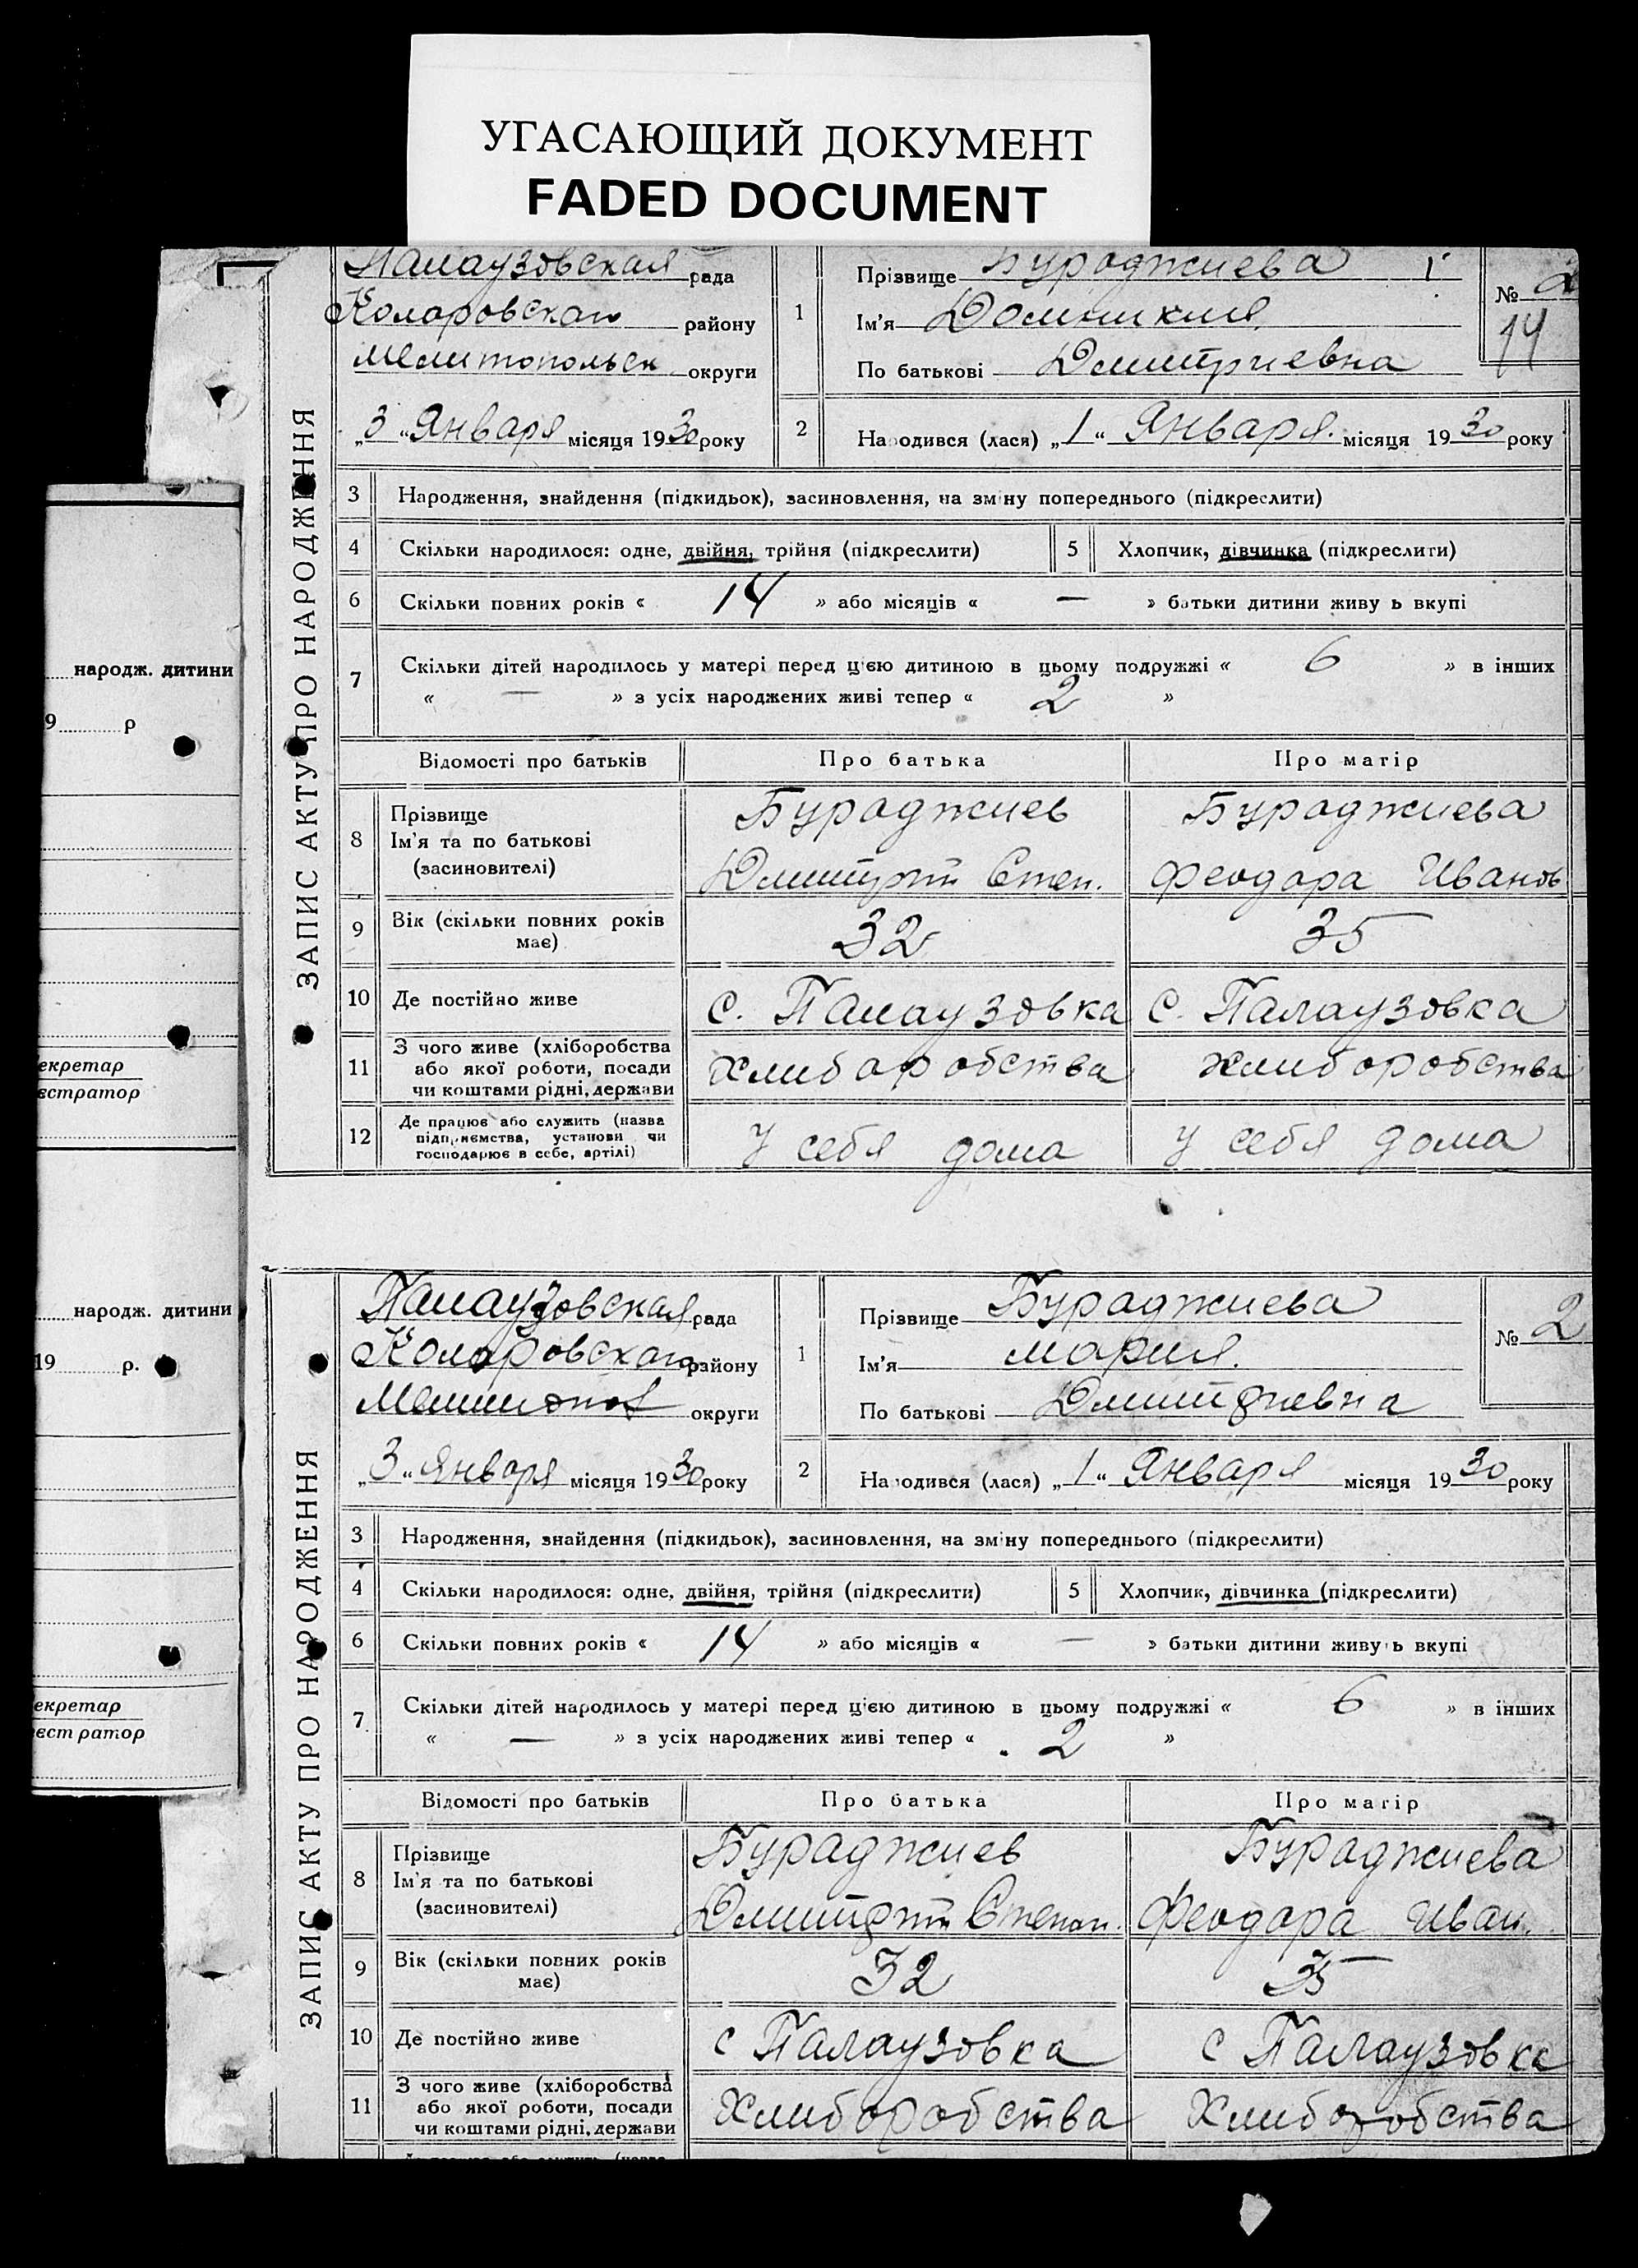 УГАСАЮЩИЙ ДОКУМЕНТ
FADED DOCUMENT
ЗАПИС АКТУ ПРО НАРОДЖЕННЯ
Палаузовская рада
Коларовскаго району
Мелитопольск округи
„3“ Января місяця 1930 року
1
Прізвище Бураджиева
Ім'я Домникия
По батькові Дмитриевна
№
14
2
Народився (лася) „1“ Января місяця 1930 року
3 Народження, знайдення (підкидьок), засиновлення, на зміну попереднього (підкреслити)
4 Скільки народилося: одне, двійня, трійня (підкреслити) 5 Хлопчик, дівчинка (підкреслити)
6 Скільки повних років « 14 » або місяців « — » батьки дитини живуть вкупі
7 Скільки дітей народилось у матері перед цією дитиною в цьому подружжі « 6 » в інших
« — » з усіх народжених живі тепер « 2 »
Відомості про батьків Про батька Про матір
8 Прізвище Бураджиев Бураджиева
Ім'я та по батькові
(засиновителі) Дмитрий Степ. Феодора Иванов
9 Вік (скільки повних років має) 32 35
10 Де постійно живе с. Палаузовка с. Палаузовка
11 З чого живе (хліборобства
або якої роботи, посади Хлиборобства Хлиборобства
чи коштами рідні, держави
12 Де працює або служить (назва
підприємства, установи чи У себя дома У себя дома
господарює в себе, артілі)
ЗАПИС АКТУ ПРО НАРОДЖЕННЯ
Палаузовская рада
Коларовскаго району
округи
„3“ Января місяця 1930 року
1
Прізвище Бураджиева
Ім'я Мария.
По батькові Дмитриевна
№ 2
2
Народився (лася) „1“ Января місяця 1930 року
3 Народження, знайдення (підкидьок), засиновлення, на зміну попереднього (підкреслити)
4 Скільки народилося: одне, двійня, трійня (підкреслити) 5 Хлопчик, дівчинка (підкреслити)
6 Скільки повних років « 14 » або місяців « — » батьки дитини живуть вкупі
7 Скільки дітей народилось у матері перед цією дитиною в цьому подружжі « 6 » в інших
« — » з усіх народжених живі тепер « 2 »
Відомості про батьків Про батька Про матір
8 Прізвище Бураджиев Бураджиева
Ім'я та по батькові
(засиновителі) Дмитрий Степан. Феодора Иван.
9 Вік (скільки повних років має) 32 35
10 Де постійно живе с Палаузовка с Палаузовка
11 З чого живе (хліборобства
або якої роботи, посади Хлиборобства Хлиборобства
чи коштами рідні, держави
народж. дитини
9 р
екретар
єстратор
народж. дитини
19 р.
екретар
єстратор